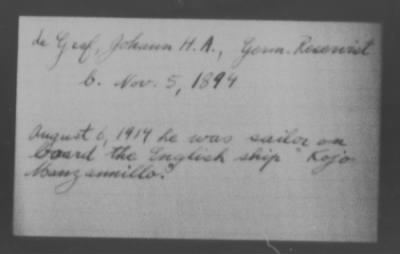 de Graf, Johann H. A., Germ. Reservist
b. Nov. 5, 1894
August 6, 1914 he was sailor on
board the English ship "Kojo
Manzannillo."